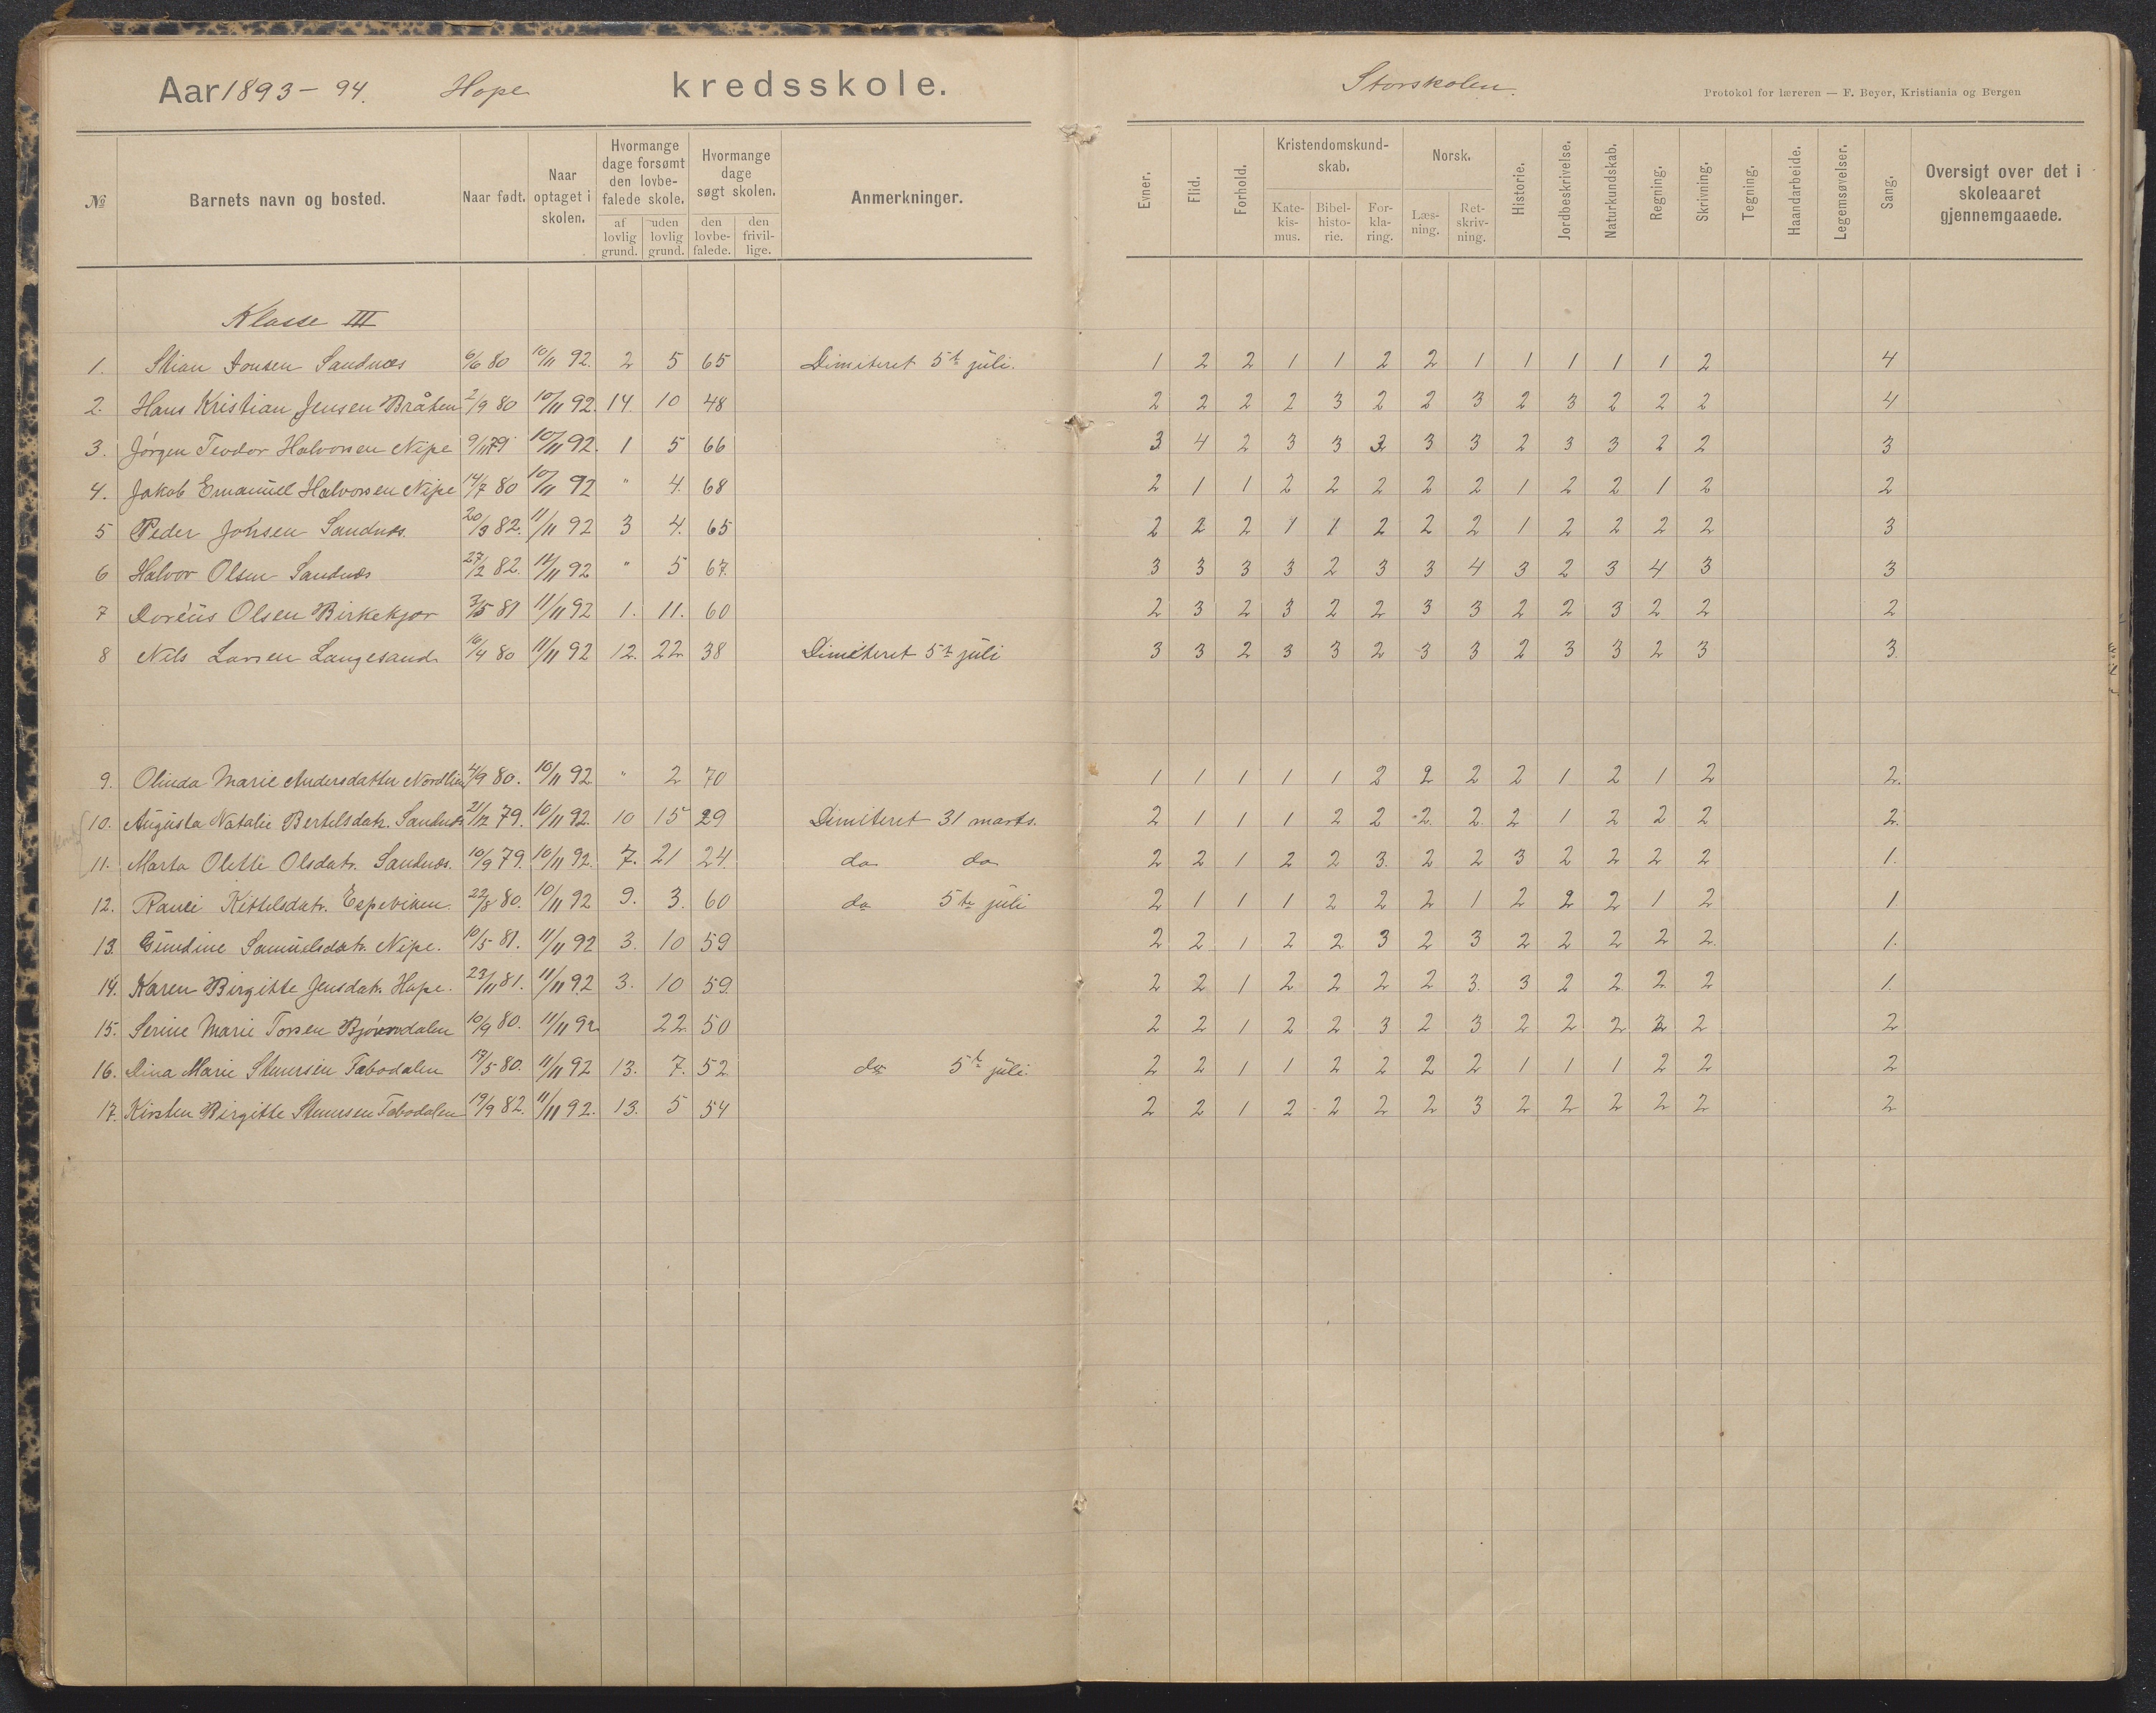 Aar 1893-94. Hope kredsskole.
Storskolen.
Protokol for læreren — F. Beyer, Kristiania og Bergen
№ Barnets navn og bosted. Naar født. Naar optaget i skolen. Hvormange dage forsømt den lovbefalede skole. af lovlig grund. uden lovlig grund. Hvormange dage søgt skolen. den lovbefalede. den frivillige. Anmerkninger. Evner. Flid. Forhold. Kristendomskundskab. Katekismus. Bibelhistorie. Forklaring. Norsk. Læsning. Retskrivning. Historie. Jordbeskrivelse. Naturkundskab. Regning. Skrivning. Tegning. Haandarbeide. Legemsøvelser. Sang. Oversigt over det i skoleaaret gjennemgaaede.
Klasse III
1. Stian Jonsen Sandnæs 6/6 80 10/11 92. 2 5 65 Dimiteret 5te juli. 1 2 2 1 1 2 2 1 1 1 1 1 2 4
2. Hans Kristian Jensen Bråten 2/9 80 10/11 92. 14 10 48 2 2 2 2 3 2 2 3 2 3 2 2 2 4
3. Jørgen Teodor Halvorsen Nipe 9/11 79 10/11 92. 1 5 66 3 4 2 3 3 3 3 3 2 3 3 2 2 3
4. Jakob Emanuel Halvorsen Nipe 14/7 80 10/11 92 " 4. 68 2 1 1 2 2 2 2 2 1 2 2 1 2 2
5 Peder Johsen Sandnæs. 20/3 82. 11/11 92 3 4. 65 2 2 2 1 1 2 2 2 1 2 2 2 2 3
6 Halvor Olsen Sandnæs 27/2 82. 11/11 92 " 5 67. 3 3 3 3 2 3 3 4 3 2 3 4 3 3
7 Doréus Olsen Birkekjær 3/5 81 11/11 92 1. 11. 60 2 3 2 3 2 2 3 3 2 2 3 2 2 2
8 Nils Larsen Langesand 16/4 80 11/11 92 12. 22 38 Dimiteret 5te juli 3 3 2 3 3 2 3 3 2 3 3 2 3 3.
9. Olinda Marie Andersdatter Nordlien 4/9 80. 10/11 92 " 2 70 1 1 1 1 1 2 2 2 2 1 2 1 2 2.
10. Augusta Natalie Bertilsdatr. Sandnæs 21/12 79. 10/11 92. 10 15 29 Dimiteret 31 marts. 2 1 1 1 2 2 2. 2. 2 1 2 2 2 2.
11. Marta Olette Olsdatr. Sandnæs. 10/9 79. 10/11 92. 7. 21 24. do do 2 2 1 2 2 3. 2 2 3 2 2 2 2 1.
12. Ranei Kittelsdatr. Espeviken. 22/8 80. 10/11 92 9. 3. 60 do 5te juli 2 1 1 1 2 2 2 1 2 2 2 1 2 1
13. Gundine Samuelsdatr. Nipe. 10/5 81. 11/11 92 3. 10 59 2 2 1 2 2 3 2 3 2 2 2 2 2. 1.
14. Karen Birgitte Jensdatr. Hope. 23/11 81. 11/11 92 3. 10 59. 2 2 1 2 2 2 2 3. 3 2 2 2 2 1.
15. Serine Marie Torsen Bjørndalen 10/9 80. 11/11 92 22 50 2 2 1 2 2 3 2 3 2 2 2 2 2 2
16. Dina Marie Stensen Tabodalen 17/5 80. 11/11 92 13. 7. 52 do 5te juli. 2 2 1 1 2 2 2 2 1 1 1 2 2 2
17. Kirsten Birgitte Stensen Tabodalen 19/9 82. 11/11 92. 13. 5 54 2 2 1 2 2 2 2 3 2 2 2 2 2 2